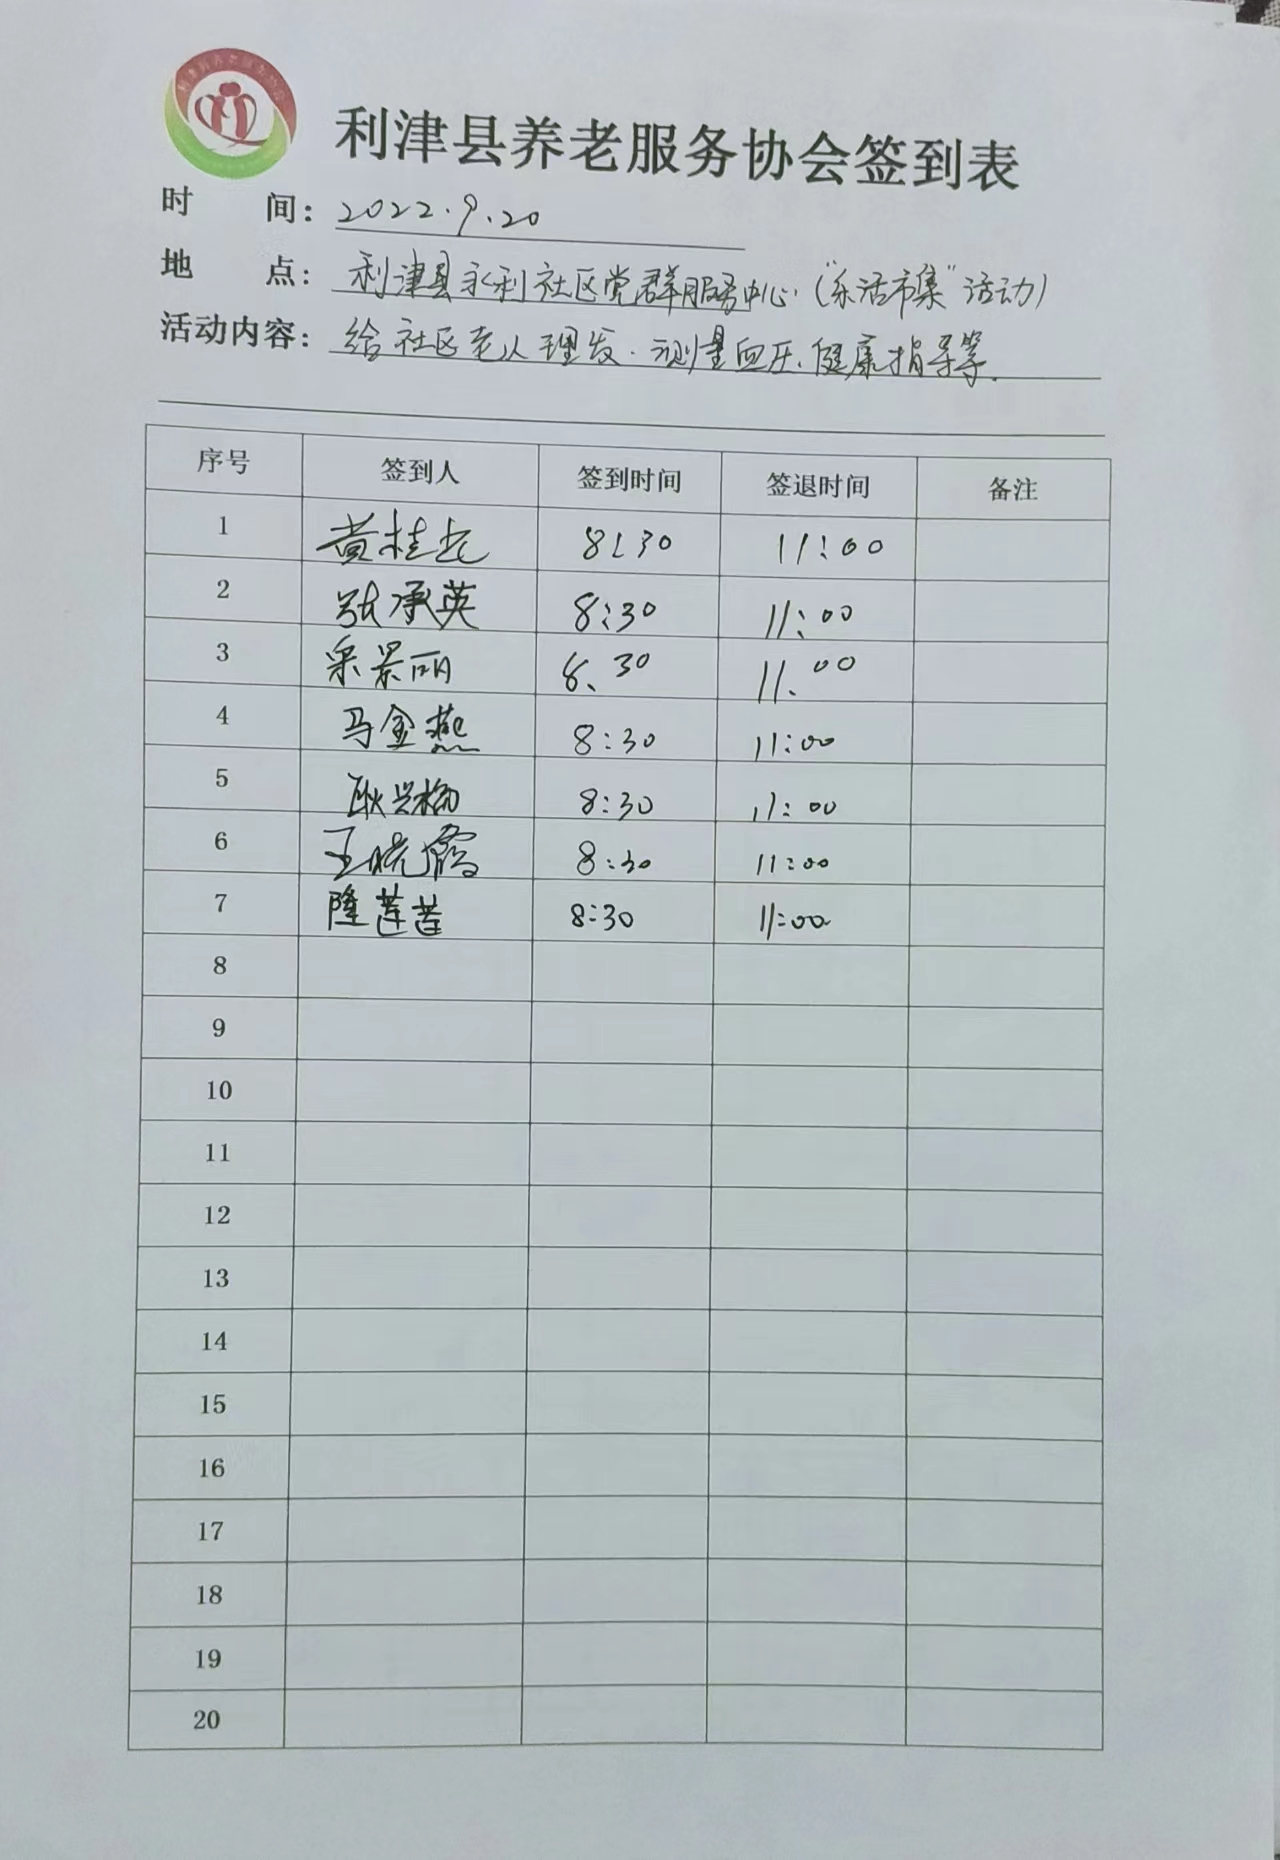 利津县养老服务协会
利津县养老服务协会签到表
时 间: 2022.9.20
地 点: 利津县永利社区党群服务中心.(“乐活市集”活动)
活动内容: 给社区老人理发.测量血压.健康指导等.
序号 签到人 签到时间 签退时间 备注
1 黄桂 8:30 11:00
2 张承英 8:30 11:00
3 景丽 8.30 11.00
4 马金燕 8:30 11:00
5 耿兴梅 8:30 11:00
6 王晓霞 8:30 11:00
7 隆莲莲 8:30 11:00
8
9
10
11
12
13
14
15
16
17
18
19
20